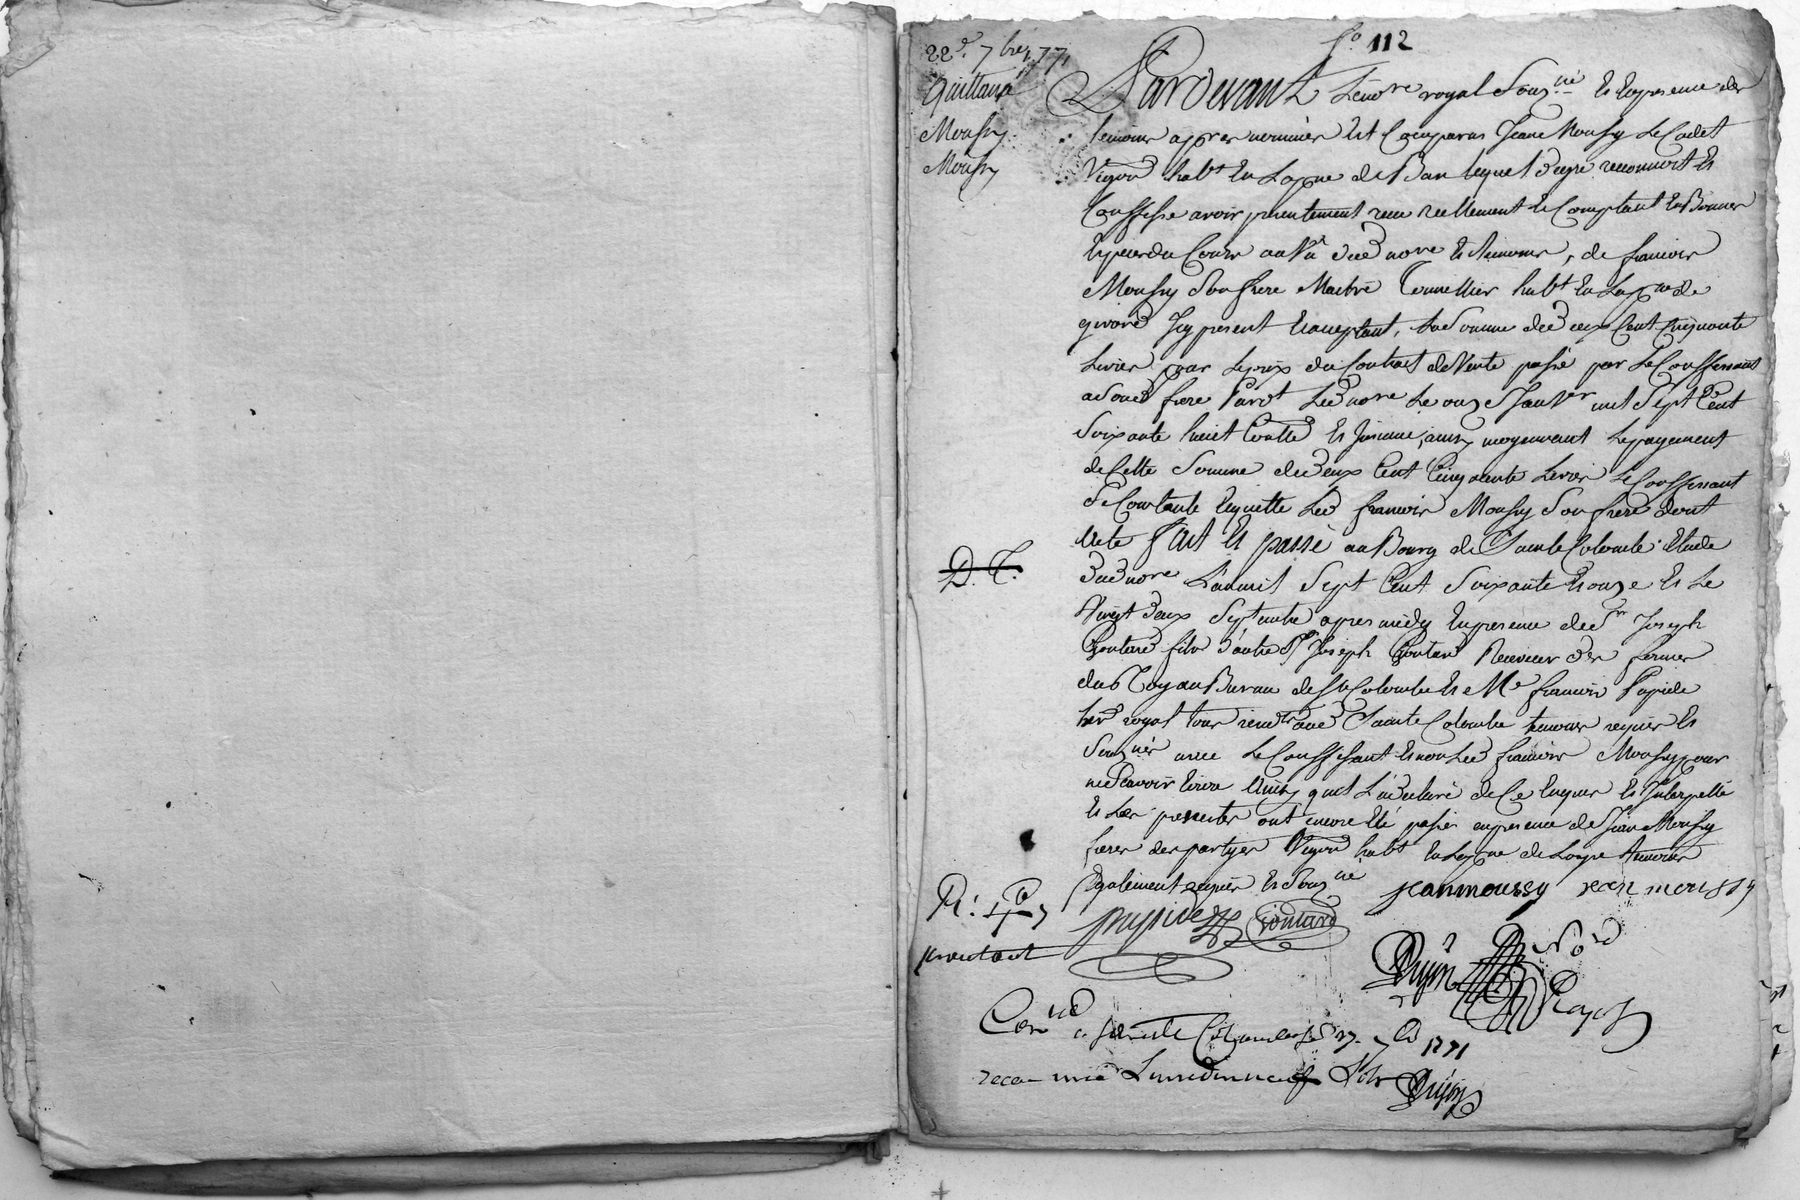 fo 112
22e 7bre 1771
Quittance
Moussy
Moussy
Pardevant le nore royal Souzné et En presence des
temoins apres nommés Est Comparu Jean Moussy Le Cadet
Vigon habt En La psse de Ban lequel de gre reconnoit Et
Confesse avoir presentement receu reellement Et Comptant En Bonnes
Especes du Cours au Vû dud nore Et temoins, de francois
Moussy Son frere Maitre Tonnellier habt En La psse de
Icy present Et acceptant, La Somme de deux Cent Cinquante
Livres pour Le prix du Contract de Vente passé par Le Confessant
a Son d frere Pardt Led nore Le onze Janver mil Sept Cent
Soixante huict Conllé Et Insinué, ainsy moyennant Le payement
de Cette Somme de deux Cent Cinquante Livres Le Confessant
Se Contente Et quitte Led francois Moussy Son frere dont
Acte fait Et passé au Bourg de Sainte Colombe Etude
dud nore L'an mil Sept Cent Soixante Et onze Et Le
Vingt deux Septembre apres midy En presence de Sr Joseph
Goutard fils d'autre Sr Joseph Goutard Receveur des fermes
du Roy au Bureau de Ste Colombe Et Me francois Papire
royal tous aud Sainte Colombe temoins requis Et
Souznés avec Le Confessant Et non Led francois Moussy pour
ne Scavoir Ecrire Ainsy quil L'a declaré de Ce Enquis Et Interpellé
Et Les presentes ont encore Eté passés en presence de Jean Moussy
frere des partyes Vigon habt En La psse de Loyre temoins
Egalement requis Et Souzné
jean moussy jean moussy
D. T.
Goutard
Conlé a Sainte Colombe Le 27 7bre 1771